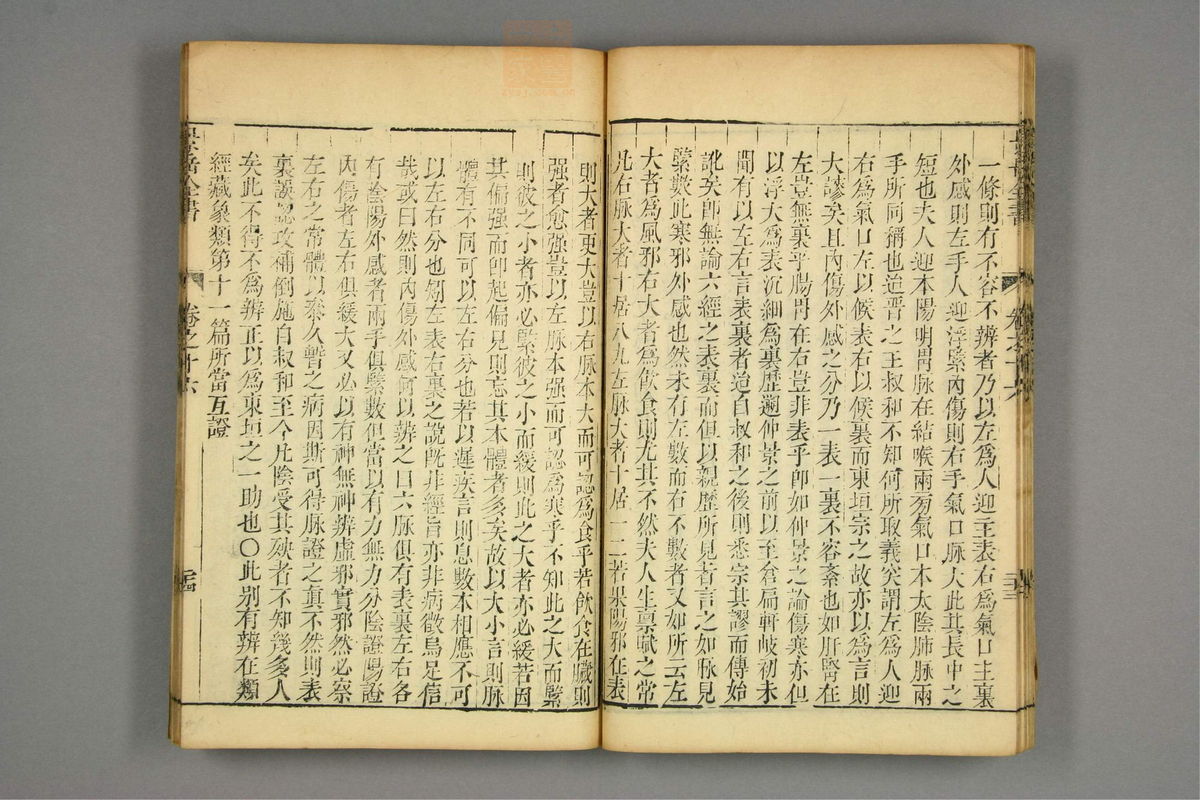 一條則有不容不辨者乃以左爲人迎主表右爲氣口主裏
外感則左手人迎浮緊內傷則右手氣口脉大此其長中之
短也夫人迎本陽明胃脉在結喉兩旁氣口本太陰肺脉兩
手所同稱也迨晋之王叔和不知何所取義突謂左爲人迎
右爲氣口左以候表右以候裏而東垣宗之故亦以爲言則
大謬矣且內傷外感之分乃一表一裏不容紊也如肝腎在
左豈無裏乎腸胃在右豈非表乎即如仲景之論傷寒亦但
以浮大爲表沉細爲裏歷遡仲景之前以至倉扁軒岐初未
聞有以左右言表裏者迨自叔和之後則悉宗其謬而傳始
訛矣即無論六經之表裏而但以親歷所見者言之如脉見
緊數此寒邪外感也然未有左數而右不數者又如所云左
大者爲風邪右大者爲飲食則尤其不然夫人生禀賦之常
凡右脉大者十居八九左脉大者十居一二若果陽邪在表
則大者更大豈以右脉本大而可認爲食乎若飲食在臟則
强者愈强豈以左脉本强而可認爲寒乎不知此之大而緊
則彼之小者亦必緊彼之小而緩則此之大者亦必緩若因
其偏强而即起偏見則忘其本體者多矣故以大小言則脉
體有不同可以左右分也若以遲疾言則息數本相應不可
以左右分也矧左表右裏之說既非經旨亦非病徵烏足信
哉或曰然則內傷外感何以辨之曰六脉俱有表裏左右各
有陰陽外感者兩手俱緊數但當以有力無力分陰證陽證
內傷者左右俱緩大又必以有神無神辨虛邪實邪然必察
左右之常體以參久暫之病因斯可得脉證之真不然則表
裏誤認攻補倒施自叔和至今凡陰受其殃者不知幾多人
矣此不得不爲辨正以爲東垣之一助也○此别有辨在類
經藏象類第十一篇所當互證